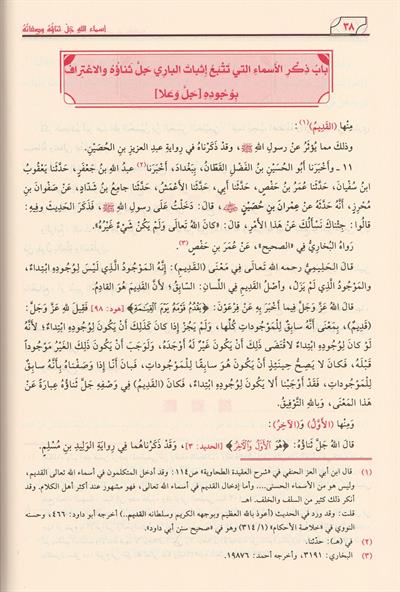 ٣٨
أسماء الله جَلَّ ثناؤُه وصفاتُه
بابُ ذِكْرِ الأسماءِ التي تَتْبَعُ إثباتَ الباري جَلَّ ثَناؤُهُ والاعْتِرافَ
بوُجُودِهِ [جَلَّ وَعَلا]
مِنْها (القَدِيمُ)(١):
وذلكَ مما يُؤْثَرُ عنْ رسولِ اللهِ ﷺ، وقدْ ذَكَرْناهُ في رِوايةِ عبدِ العزيزِ بنِ الحُصَيْنِ.
١١ - وأخْبَرَنا أبو الحُسَيْنِ بنُ الفَضْلِ القَطَّانُ، بِبَغْدادَ، أخْبَرَنا(٢) عبدُ اللهِ بنُ جَعْفَرٍ، حَدَّثَنا يَعْقُوبُ
ابنُ سُفْيانَ، حَدَّثَنا عُمَرُ بنُ حَفْصٍ، حَدَّثَنا أبي، حَدَّثَنا الأعْمَشُ، حَدَّثَنا جامِعُ بنُ شَدَّادٍ، عَنْ صَفْوانَ بنِ
مُحْرِزٍ، أنَّهُ حَدَّثَهُ عَنْ عِمْرانَ بنِ حُصَيْنٍ ﷺ، قالَ: دَخَلْتُ عَلَى رسولِ اللهِ ﷺ، فَذَكَرَ الحَدِيثَ وفِيهِ:
قالُوا: جِئْناكَ نَسْأَلُكَ عَنْ هذا الأَمْرِ، قالَ: «كانَ اللهُ تَعالَى وَلَمْ يَكُنْ شَيْءٌ غَيْرُهُ».
رَواهُ البُخارِيُّ في «الصحيحِ»، عَنْ عُمَرَ بنِ حَفْصٍ (٣)
قالَ الحَلِيمِيُّ رحمه الله تَعالَى في مَعْنَى (القَدِيمِ): إنَّهُ المَوْجُودُ الَّذِي لَيْسَ لِوُجُودِهِ ابْتِداءٌ،
والمَوْجُودُ الَّذِي لَمْ يَزَلْ، وأصْلُ القَدِيمِ في اللِّسانِ: السَّابِقُ؛ لأنَّ القَدِيمَ هُوَ القادِمُ.
قالَ اللهُ عَزَّ وجَلَّ فِيما أخْبَرَ بِهِ عَنْ فِرْعَوْنَ: ﴿يَقْدُمُ قَوْمَهُ يَوْمَ الْقِيَامَةِ﴾ [هود: ٩٨] فَقِيلَ للهِ عَزَّ وجَلَّ:
(قَدِيمٌ)، بِمَعْنَى أنَّهُ سابِقٌ لِلْمَوْجُوداتِ كُلِّها، وَلَمْ يَجُزْ إذا كانَ كَذَلِكَ أنْ يَكُونَ لِوُجُودِهِ ابْتِداءٌ؛ لأنَّهُ
لَوْ كانَ لِوُجُودِهِ ابْتِداءٌ لاقْتَضَى ذَلِكَ أنْ يَكُونَ غَيْرٌ لَهُ أوْجَدَهُ، وَلَوَجَبَ أنْ يَكُونَ ذَلِكَ الغَيْرُ مَوْجُوداً
قَبْلَهُ، فَكانَ لا يَصِحُّ حِينَئِذٍ أنْ يَكُونَ هُوَ سابِقًا لِلْمَوْجُوداتِ، فَبانَ أنَّا إذا وَصَفْناهُ بِأنَّهُ سابِقٌ
لِلْمَوْجُوداتِ، فَقَدْ أوْجَبْنا ألا يَكُونَ لِوُجُودِهِ ابْتِداءٌ، فكانَ (القَدِيمُ) في وَصْفِهِ جَلَّ ثَناؤُهُ عِبارَةً عَنْ
هَذا المَعْنَى، وَباللهِ التَّوْفِيقُ.
وَمِنْها (الأَوَّلُ) وَ(الآخِرُ):
قالَ اللهُ جَلَّ ثَناؤُهُ: ﴿هُوَ الْأَوَّلُ وَالْآخِرُ﴾ [الحديد: ٣]، وَقَدْ ذَكَرْناهُما في رِوايَةِ الوَلِيدِ بنِ مُسْلِمٍ.
(١) قال ابن أبي العز الحنفي في «شرح العقيدة الطحاوية» ص١١٤: وقد أدخل المتكلمون في أسماء الله تعالى القديم،
وليس هو من الأسماء الحسنى.... وأما إدخال القديم في أسماء الله تعالى، فهو مشهور عند أكثر أهل الكلام. وقد
أنكر ذلك كثير من السلف والخلف. اهـ
قلت: وقد ورد في الحديث (أعوذ بالله العظيم وبوجهه الكريم وسلطانه القديم..) أخرجه أبو داود: ٤٦٦، وحسنه
النووي في «خلاصة الأحكام» (١/ ٣١٤) وهو في «صحيح سنن أبي داود».
(٢) في (هـ): حدّثنا.
(٣) البخاري: ٣١٩١، وأخرجه أحمد: ١٩٨٧٦.